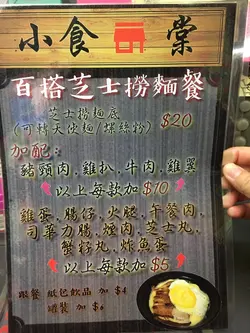 小食棠
百搭芝士撈麵餐
芝士撈麵底
(可轉天使麵/螺絲粉) $20
加配:
豬頸肉,雞扒,牛肉,雞翼
以上每款加$10
雞蛋,腸仔,火腿,午餐肉,
司華力腸,煙肉,芝士丸,
蟹籽丸,炸魚蛋
以上每款加$5
跟餐 紙包飲品 加 $4
罐裝 加 $6